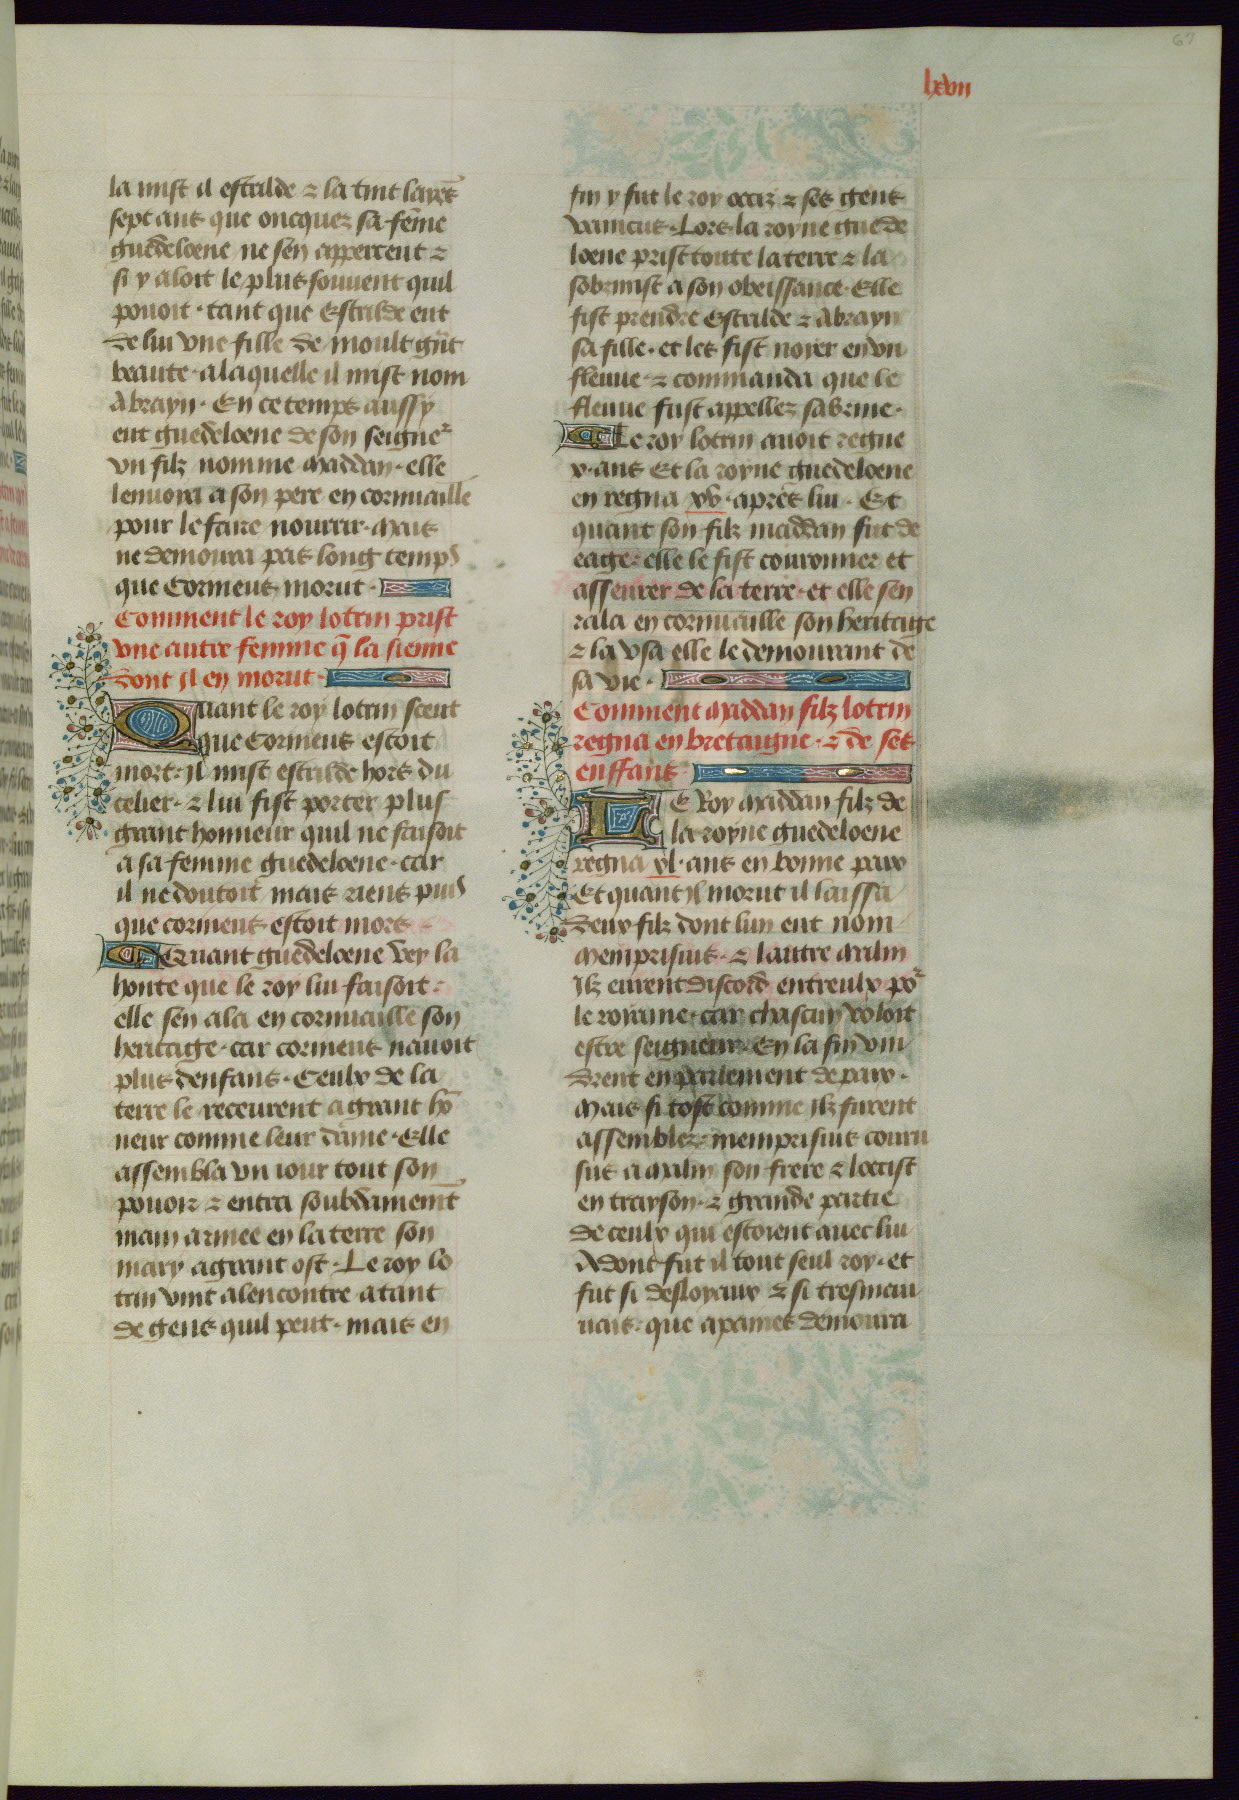 67
lxvii
la mist il estrilde ⁊ la tint layẽs
sept ans que oncques sa fẽme
guedeloene ne sen appercent ⁊
si y aloit le plus souuent quil
pouoit · tant que Estrilde eut
de lui vne fille de moult gñt
beaute · a laquelle il mist nom
Abrayn · En ce temps aussy
eut guedeloene de son seigneᷣ
vn filz nomme Maddan · elle
lenuoia a son pere en cornuaille
pour le faire nourrir · Mais
ne demoura pas long temps
que Corineus morut ·
Comment le roy lotrin prist
vne autre femme q̃ la sienne
dont il en morut
Quant le roy lotrin sceut
que Corineus estoit
mort · il mist estrilde hors du
celier · ⁊ lui fist porter plus
grant honneur quil ne faisoit
a sa femme guedeloene · car
il ne doutoit mais riens puis
que corineus estoit mort
Quant guedeloene vey la
honte que le roy lui faisoit ·
elle sen ala en cornuaille son
heritage · car corineus nauoit
plus denfans · Ceulx de la
terre le receurent a grant hõ
neur comme leur dame · Elle
assembla vn iour tout son
pouoir ⁊ entra soubdainemẽt
main armee en la terre son
mary a grant ost · Le roy lo
trin vint alencontre a tant
de gens quil peut · mais en
fin y fut le roy occiz ⁊ ses gens
vaincus · Lors la royne guede
loene prist toute la terre ⁊ la
sobzmist a son obeissance · Elle
fist prendre Estrilde ⁊ Abrayn
sa fille · et les fist noyer en vn
fleuue · ⁊ commanda que le
fleuue fust appellez sabrine ·
Le roy lotrin auoit regne
x · ans Et la royne guedeloene
en regna xv · apres lui · Et
quant son filz maddan fut de
eage · elle le fist couronner et
asseurer de la terre · et elle sen
rala en cornuaille son heritage
⁊ la vsa elle le demourant de
sa vie ·
Comment Maddan filz lotrin
regna en bretaigne · ⁊ de ses
enffans
LE Roy Maddan filz de
la royne guedeloene
regna xl · ans en bonne paix
Et quant il morut il laissa
deux filz dont lun eut nom
Memprisius · ⁊ lautre Malin
Ilz eurent discord entreulx poᷣ
le roiaume · car chascun voloit
estre seigneur · En la fin vin
drent en parlement de paix ·
Mais si tost comme ilz furent
assemblez · memprisius couru
sus a Malin son frere ⁊ loccist
en trayson · ⁊ grande partie
de ceulx qui estoient auec lui
Adont fut il tout seul roy · et
fut si desloyaux ⁊ si tresmau
uais · que a paines demoura